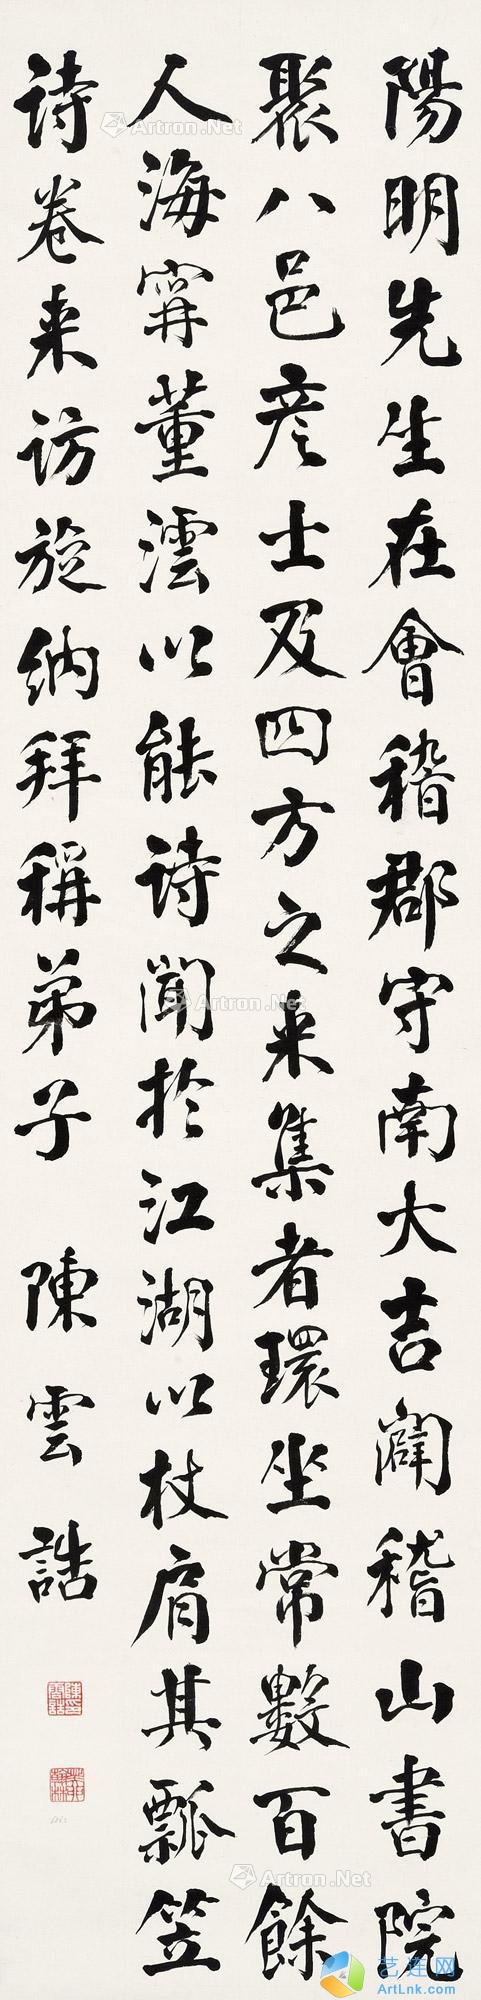 陽明先生在會稽郡守南大吉闢稽山書院
聚八邑彦士及四方之来集者環坐常數百餘
人海甯董澐以能詩聞於江湖以杖肩其瓢笠
詩卷来访旋納拜稱弟子 陳雲誥
Artron.Net
Artron.Net
Artron.Net
Artron.Net
Artron.Net
Artron.Net
艺连网
ArtLnk.com